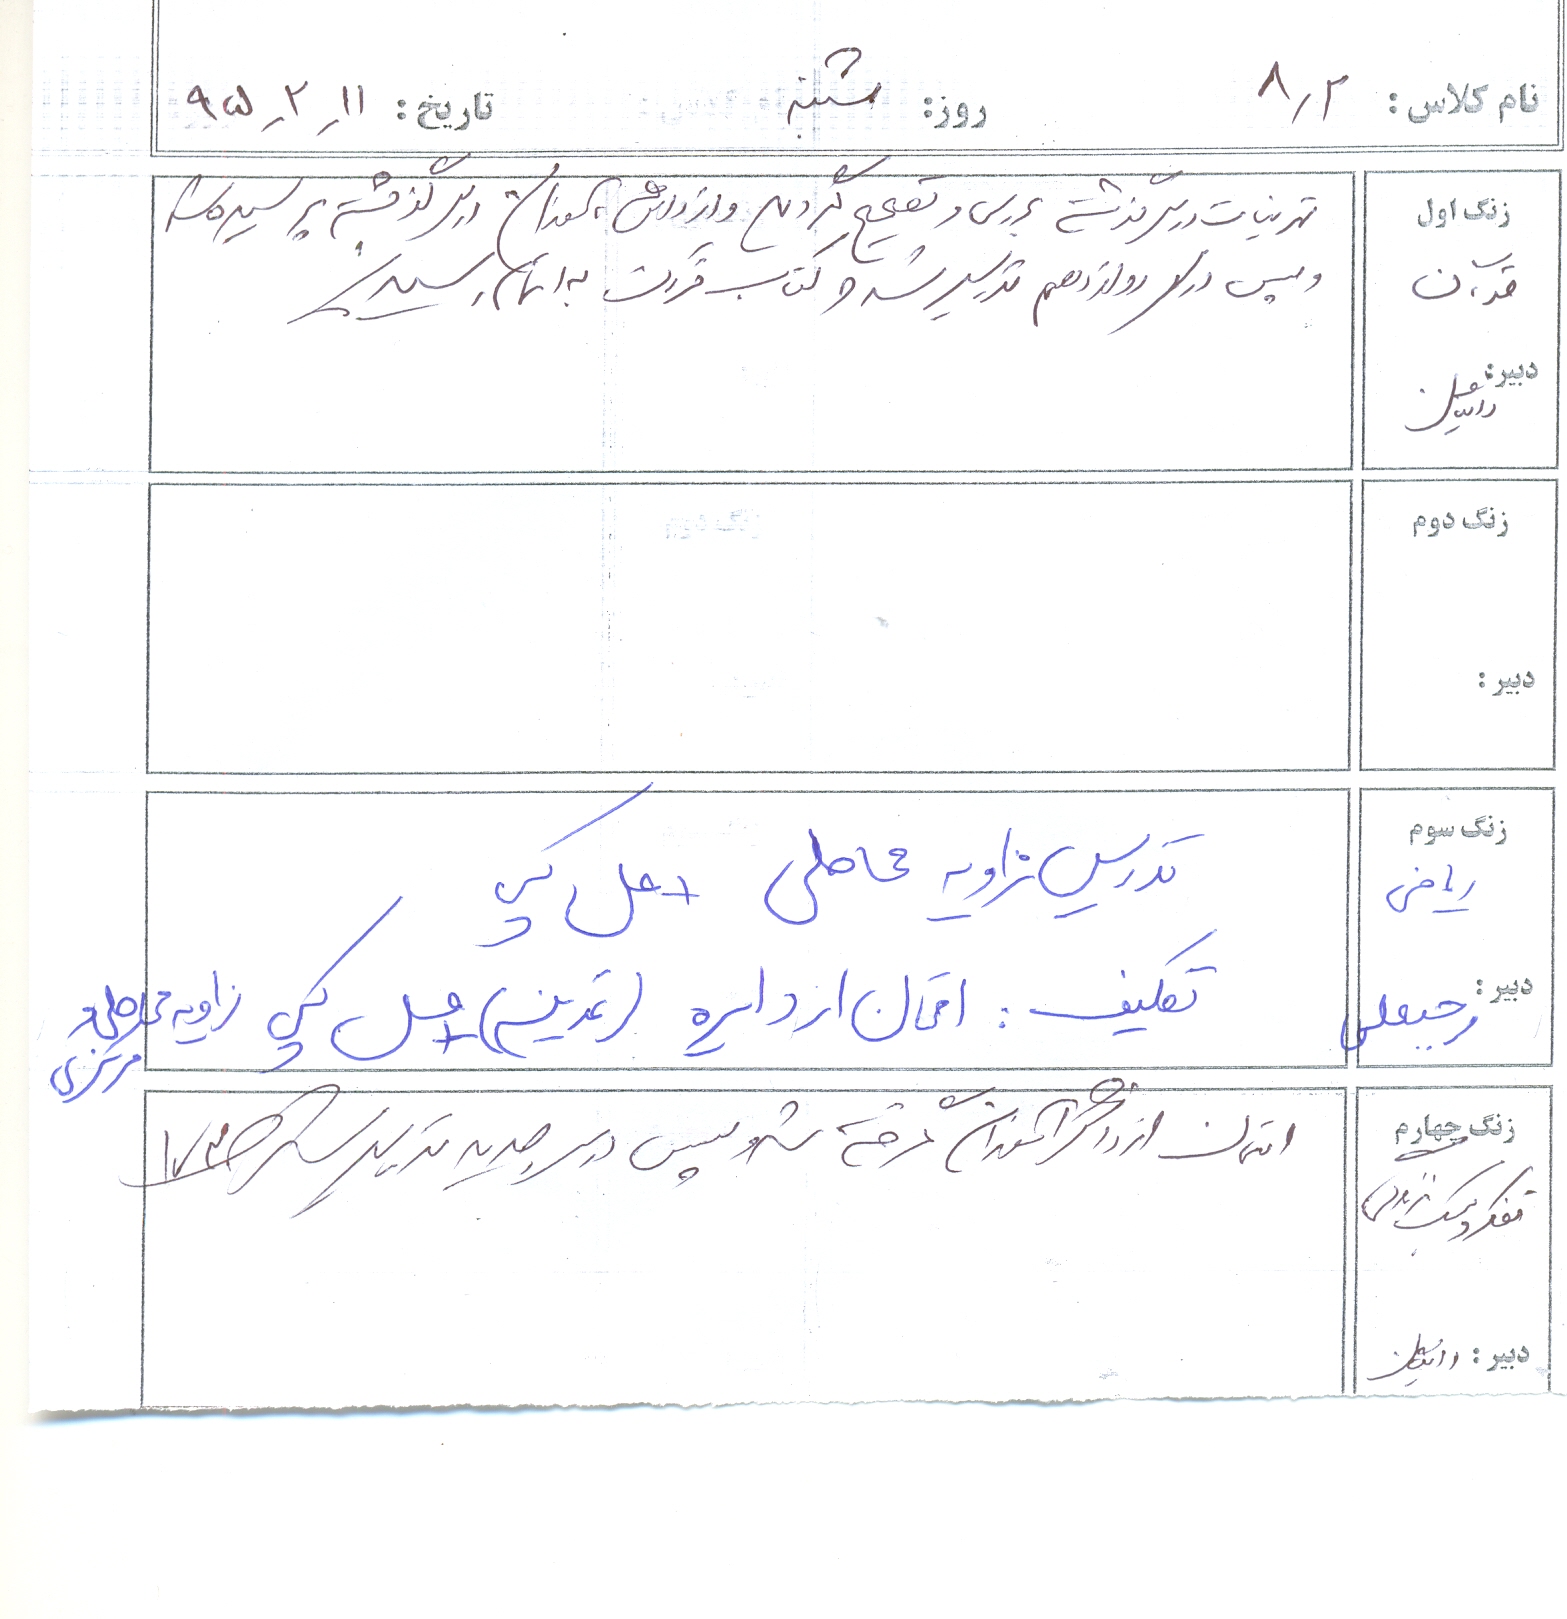 نام کلاس : ۸٫۲ روز: شنبه تاریخ : ۹۵٫۲٫۱۱
زنگ اول
قرآن
دبیر:
تمرینات درس گذشته بررسی و تصحیح گردید و از دانش آموزان درس گذشته پرسیده شد
و سپس درس دوازدهم تدریس شد و کتاب قرائت به اتمام رسید
زنگ دوم
دبیر :
زنگ سوم
ریاضی
دبیر : رجبعلی
تدریس زاویه محاطی + حل
تکلیف : امتحان از دایره (تمرین) + زاویه محاطی و
مرکزی
زنگ چهارم
تفکر و سبک زندگی
دبیر :
امتحان از دانش آموزان گرفته شد و سپس درس جدید تدریس شد